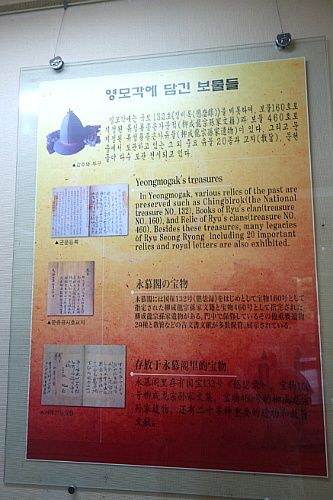 영모각에 담긴 보물들
영모각에는 국보 132호(징비록(懲毖錄))을 비롯하여, 보물160호로
지정된 류성룡종손가문적(柳成龍宗孫家文籍)과 보물 460호로
지정된 류성룡종손가유물(柳成龍宗孫家遺物)이 있다. 그리고 문
중에서 보관하고 있는 그 외 중요 유물 20종과 교지(敎旨), 문헌
들이 다수 보관 전시되고 있다.
▲갑주와 투구
Yeongmogak's treasures
In Yeongmogak, various relics of the past are
preserved such as Chingbirok(the National
treasure NO. 132), Books of Ryu's clan(treasure
NO. 160), and Relic of Ryu s clans(treasure NO.
460). Besides these treasures, many legacies
of Ryu Seong Ryong including 20 important
relics and royal letters are also exhibited.
▲군문등록
永慕閣の宝物
永慕閣には国宝132号《懲毖録》をはじめとして宝物160号として
指定された柳成龍宗孫家文籍と宝物460号として指定された
柳成龍宗孫家遺物がある。門中で保管しているその他重要遺物
20種と敎旨などの古文書文献が多数保管、展示されている。
存放于永慕阁里的宝物
永慕阁里存有国宝132号《惩毖录》，宝物160
号柳成龙宗孙家文集，宝物460号的柳成龙宗
孙家遗物，还有二十多种重要的遗物和教旨
文献。